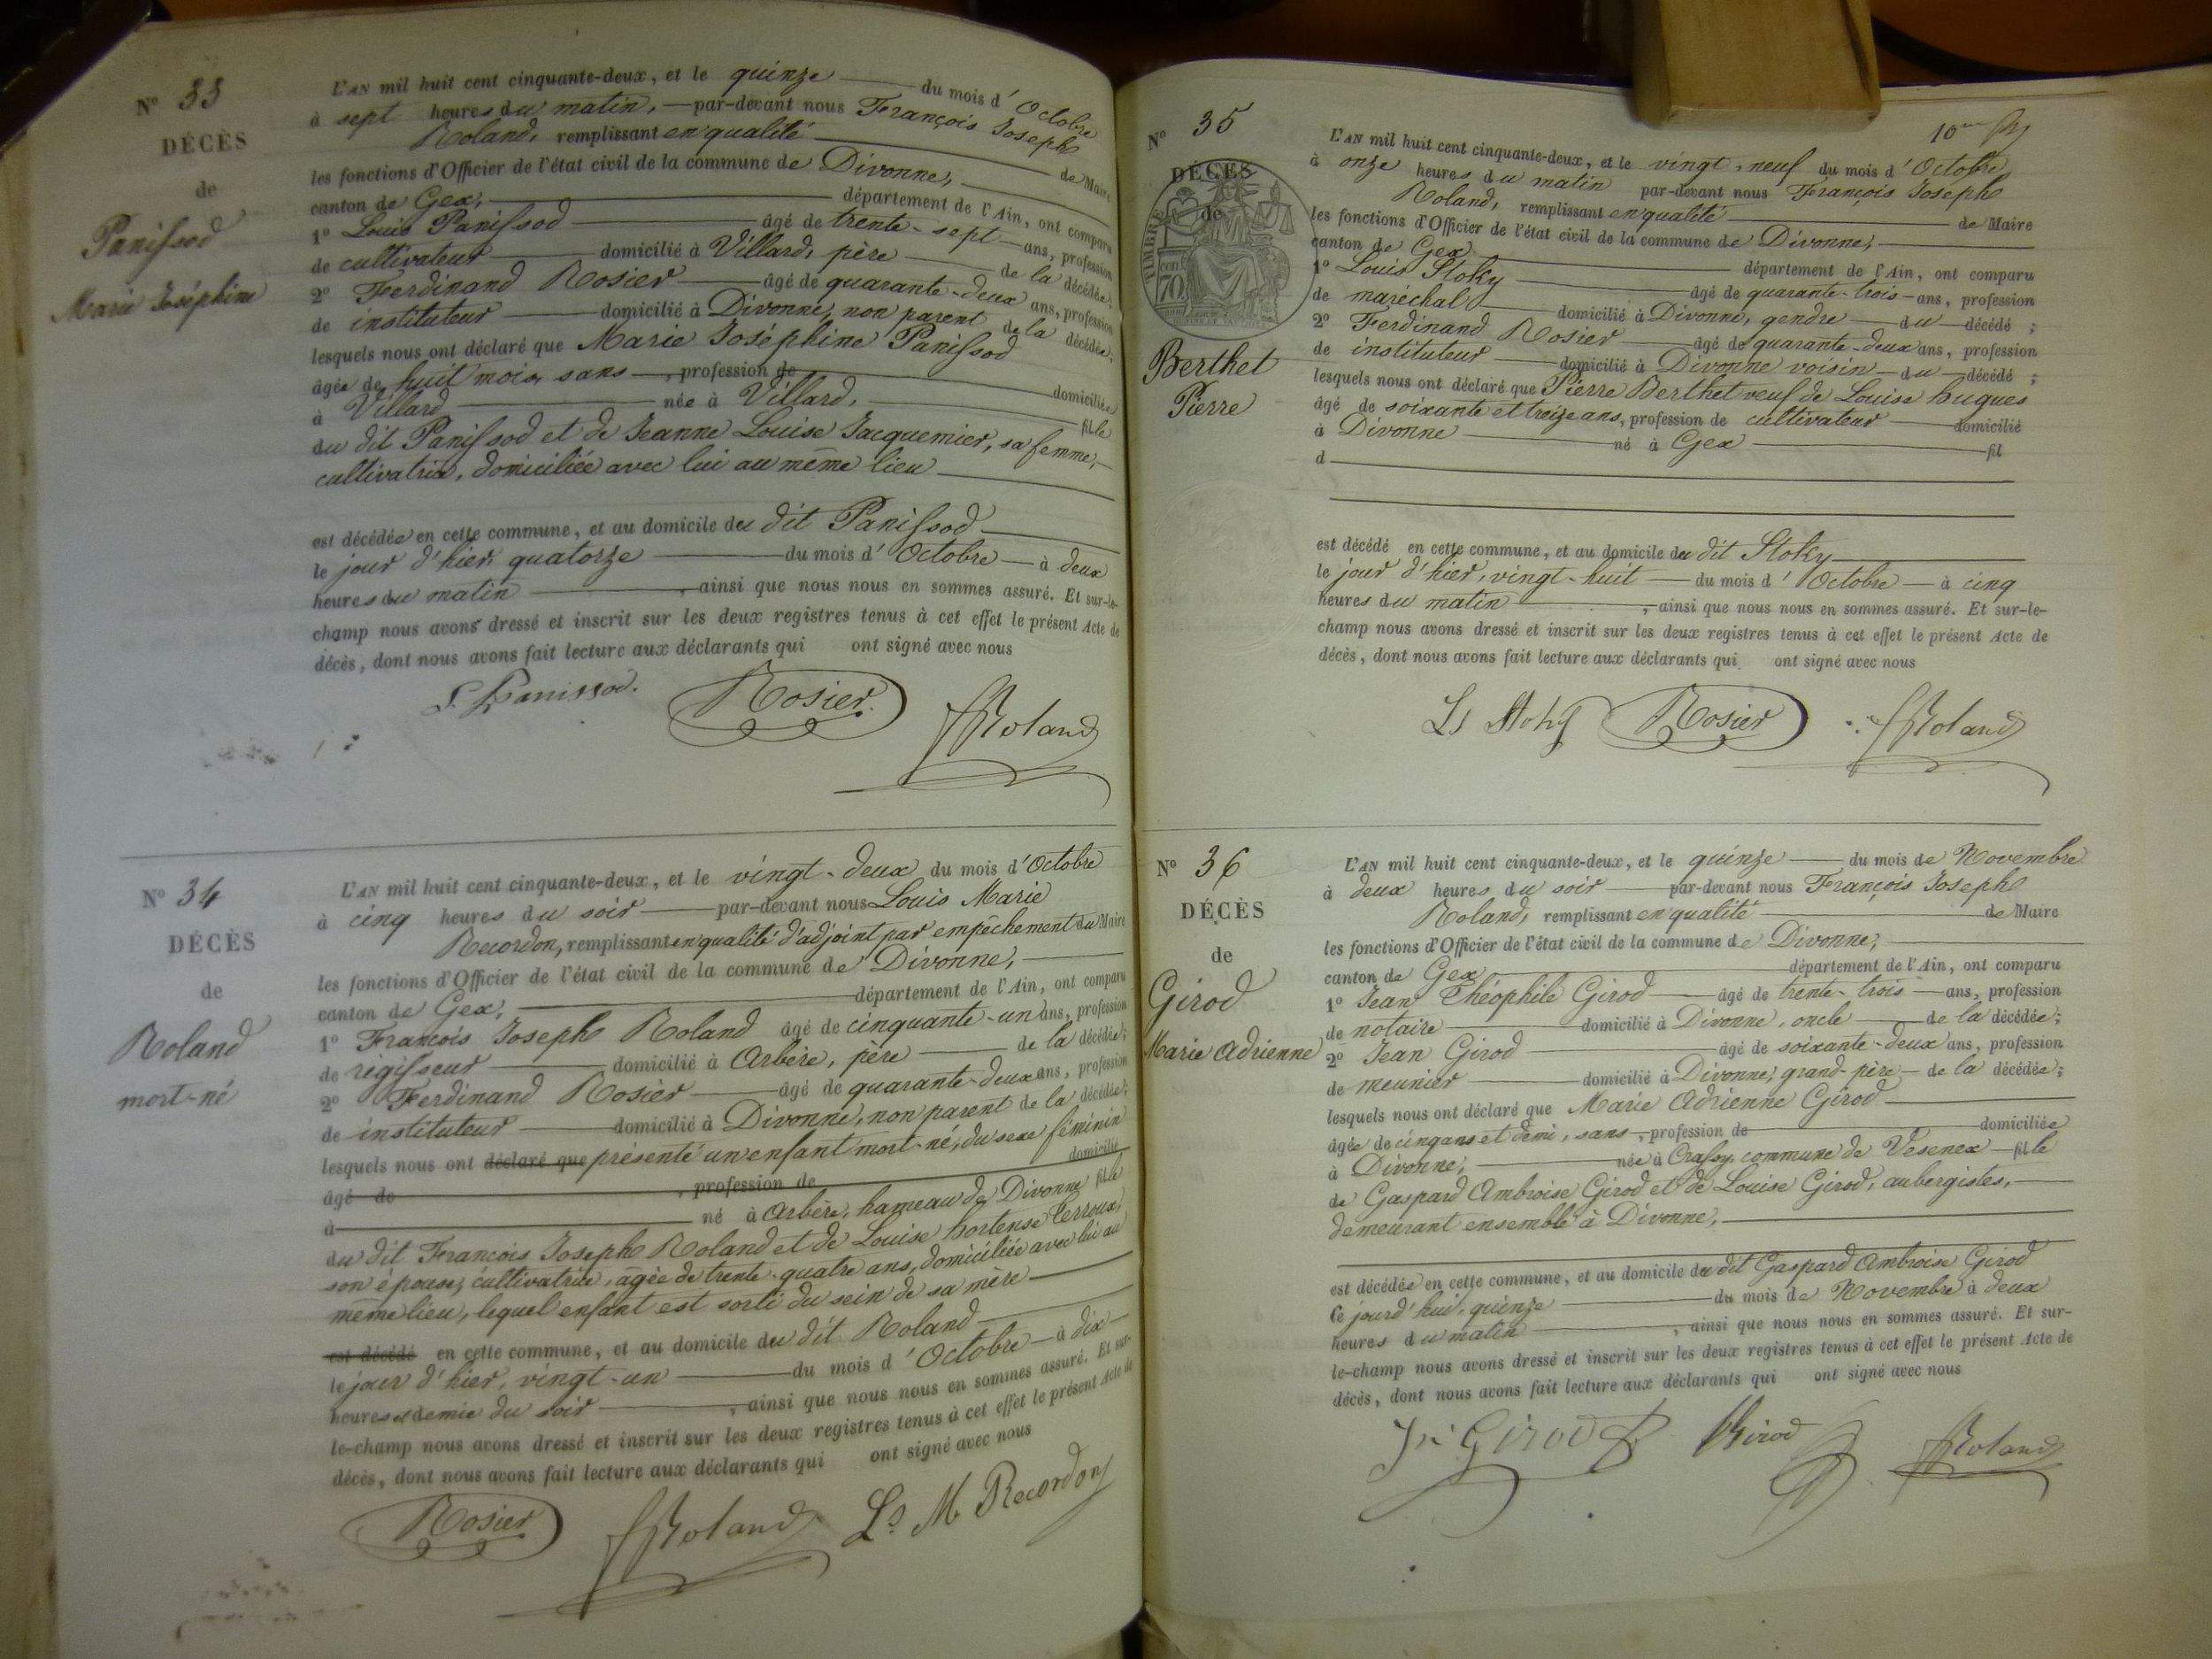 N° 33
DÉCÈS
de
Panissod
Marie Joséphine
L'AN mil huit cent cinquante-deux, et le quinze du mois d'Octobre
à sept heures du matin, par-devant nous François Joseph
Roland, remplissant en qualité de Maire
les fonctions d'Officier de l'état civil de la commune de Divonne,
canton de Gex, département de l'Ain, ont comparu
1° Louis Panissod âgé de trente-sept ans, profession
de cultivateur domicilié à Villard, père de la décédée;
2° Ferdinand Rosier âgé de quarante-deux ans, profession
de instituteur domicilié à Divonne, non parent de la décédée;
lesquels nous ont déclaré que Marie Joséphine Panissod
âgée de huit mois, sans, profession de domiciliée
à Villard née à Villard, fille
du dit Panissod et de Jeanne Louise Jacquemier, sa femme,
cultivatrice, domiciliée avec lui au même lieu
est décédée en cette commune, et au domicile du dit Panissod
le jour d'hier, quatorze du mois d'Octobre à deux
heures du matin, ainsi que nous nous en sommes assuré. Et sur-le-
champ nous avons dressé et inscrit sur les deux registres tenus à cet effet le présent Acte de
décès, dont nous avons fait lecture aux déclarants qui ont signé avec nous
L. Panissod. Rosier. Roland
N° 34
DÉCÈS
de
Roland
mort-né
L'AN mil huit cent cinquante-deux, et le vingt-deux du mois d'Octobre
à cinq heures du soir par-devant nous Louis Marie
Recordon, remplissant en qualité d'adjoint par empêchement du Maire
les fonctions d'Officier de l'état civil de la commune de Divonne,
canton de Gex, département de l'Ain, ont comparu
1° François Joseph Roland âgé de cinquante-un ans, profession
de régisseur domicilié à Arbère, père de la décédée;
2° Ferdinand Rosier âgé de quarante-deux ans, profession
de instituteur domicilié à Divonne, non parent de la décédée;
lesquels nous ont déclaré que présenté un enfant mort-né, du sexe féminin
âgé de, profession de domicilié
à né à Arbère, hameau de Divonne fille
du dit François Joseph Roland et de Louise hortense Perroux,
son épouse, cultivatrice, âgée de trente-quatre ans, domiciliée avec lui au
même lieu, lequel enfant est sorti du sein de sa mère
est décédé en cette commune, et au domicile du dit Roland
le jour d'hier, vingt-un du mois d'Octobre à dix
heures et demie du soir, ainsi que nous nous en sommes assuré. Et sur-
le-champ nous avons dressé et inscrit sur les deux registres tenus à cet effet le présent Acte de
décès, dont nous avons fait lecture aux déclarants qui ont signé avec nous
Rosier Roland Ls M Recordon
N° 35
DÉCÈS
de
TIMBRE
70
Berthet
Pierre
L'AN mil huit cent cinquante-deux, et le vingt-neuf du mois d'Octobre
à onze heures du matin par-devant nous François Joseph
Roland, remplissant en qualité de Maire
les fonctions d'Officier de l'état civil de la commune de Divonne,
canton de Gex département de l'Ain, ont comparu
1° Louis Stoky âgé de quarante-trois ans, profession
de maréchal domicilié à Divonne, gendre du décédé;
2° Ferdinand Rosier âgé de quarante-deux ans, profession
de instituteur domicilié à Divonne voisin du décédé;
lesquels nous ont déclaré que Pierre Berthet veuf de Louise hugues
âgé de soixante et treize ans, profession de cultivateur domicilié
à Divonne né à Gex fil
d
est décédé en cette commune, et au domicile du dit Stoky
le jour d'hier, vingt-huit du mois d'Octobre à cinq
heures du matin, ainsi que nous nous en sommes assuré. Et sur-le-
champ nous avons dressé et inscrit sur les deux registres tenus à cet effet le présent Acte de
décès, dont nous avons fait lecture aux déclarants qui ont signé avec nous
Ls Stoky Rosier Roland
N° 36
DÉCÈS
de
Girod
Marie Adrienne
L'AN mil huit cent cinquante-deux, et le quinze du mois de Novembre
à deux heures du soir par-devant nous François Joseph
Roland, remplissant en qualité de Maire
les fonctions d'Officier de l'état civil de la commune de Divonne,
canton de Gex département de l'Ain, ont comparu
1° Jean Théophile Girod âgé de trente-trois ans, profession
de notaire domicilié à Divonne, oncle de la décédée;
2° Jean Girod âgé de soixante-deux ans, profession
de meunier domicilié à Divonne, grand-père de la décédée;
lesquels nous ont déclaré que Marie Adrienne Girod
âgée de cinq ans et demi, sans, profession de domiciliée
à Divonne, née à Crassy, commune de Vesenex fille
de Gaspard Ambroise Girod et de Louise Girod, aubergistes,
demeurant ensemble à Divonne,
est décédée en cette commune, et au domicile du dit Gaspard Ambroise Girod
ce jourd'hui, quinze du mois de Novembre à deux
heures du matin, ainsi que nous nous en sommes assuré. Et sur-
le-champ nous avons dressé et inscrit sur les deux registres tenus à cet effet le présent Acte de
décès, dont nous avons fait lecture aux déclarants qui ont signé avec nous
Girod Girod Roland